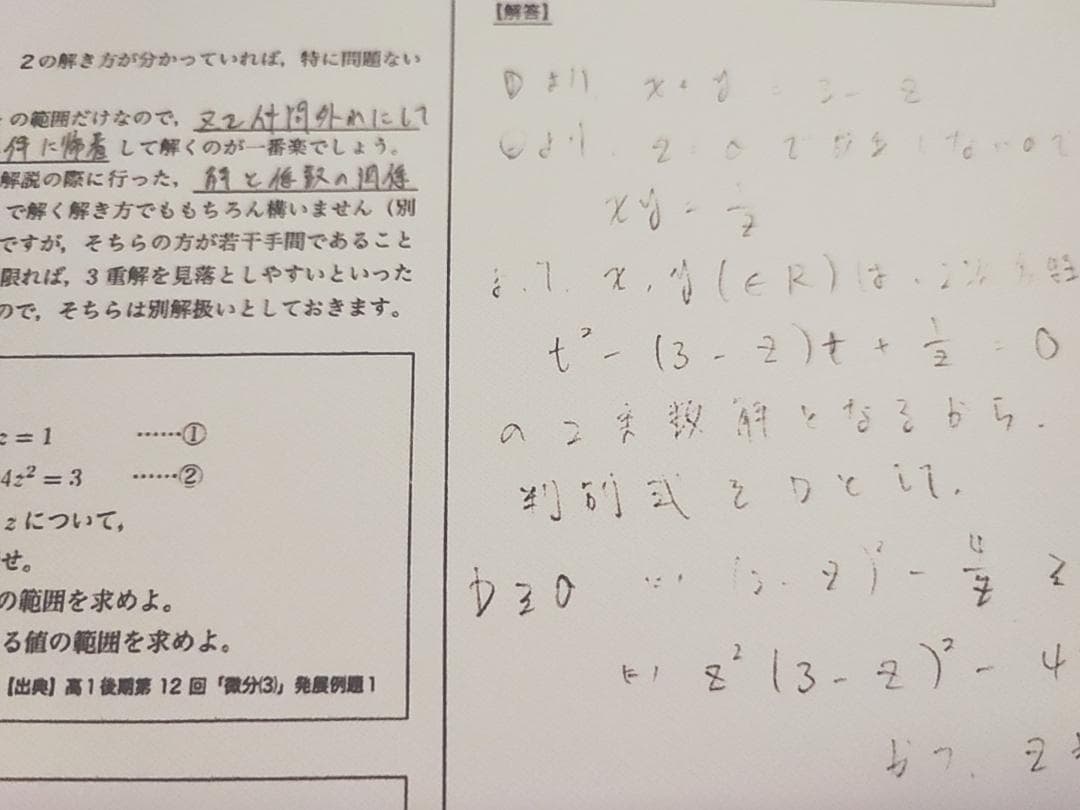 2の解き方が分かっていれば，特に問題ない
の範囲だけなので，又は付問外れにして
件に帰着して解くのが一番楽でしょう。
解説の際に行った，解と係数の関係
で解く解き方でももちろん構いません（別
ですが，そちらの方が若干手間であること
限れば，3重解を見落としやすいといった
ので，そちらは別解扱いとしておきます。
z＝1 ……①
4z²＝3 ……②
zについて，
せ。
の範囲を求めよ。
る値の範囲を求めよ。
【出典】高1後期第12回「微分⑶」発展例題1
【解答】
①より x+y=3-z
②より z=0で
xy=1/z
よって，x，y(∈R)は，2次方程
t²-(3-z)t+1/z=0
の2実数解となるから．
判別式をDとして，
D≧0 ⇔ (3-z)²-4/z≧
⇔ z²(3-z)²-4
かつ，z